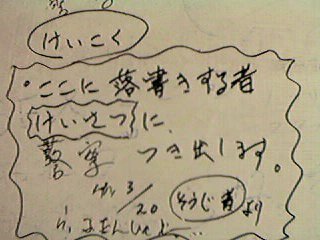 けいこく
・ここに落書きする者
けいさつに
警察 つき出します。
3/20 そうじ者より